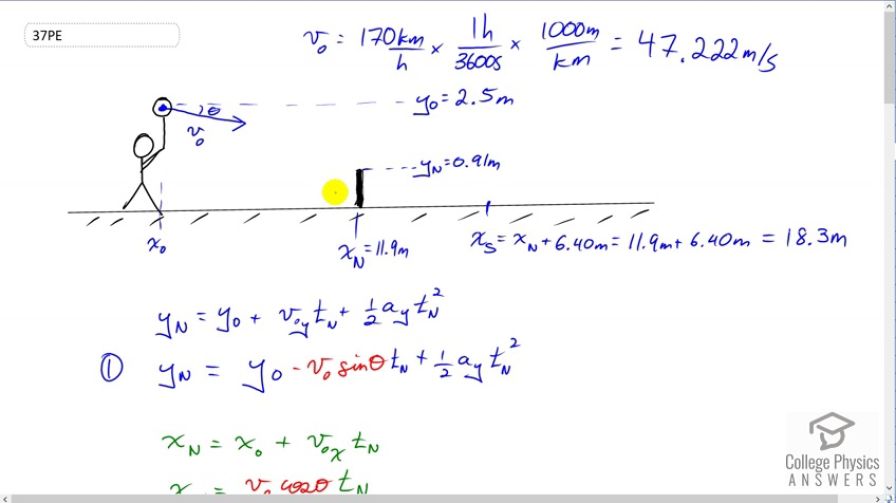 37PE
v₀ = 170 km/h × 1h/3600s × 1000m/km = 47.222 m/s
y₀ = 2.5m
θ
v₀
y_N = 0.91m
x₀
x_N = 11.9m
x_S = x_N + 6.40m = 11.9m + 6.40m = 18.3m
y_N = y₀ + v₀_y t_N + ½ a_y t_N²
① y_N = y₀ - v₀ sinθ t_N + ½ a_y t_N²
x_N = x₀ + v₀_x t_N
x = v₀ cosθ t_N
College Physics
ANSWERS